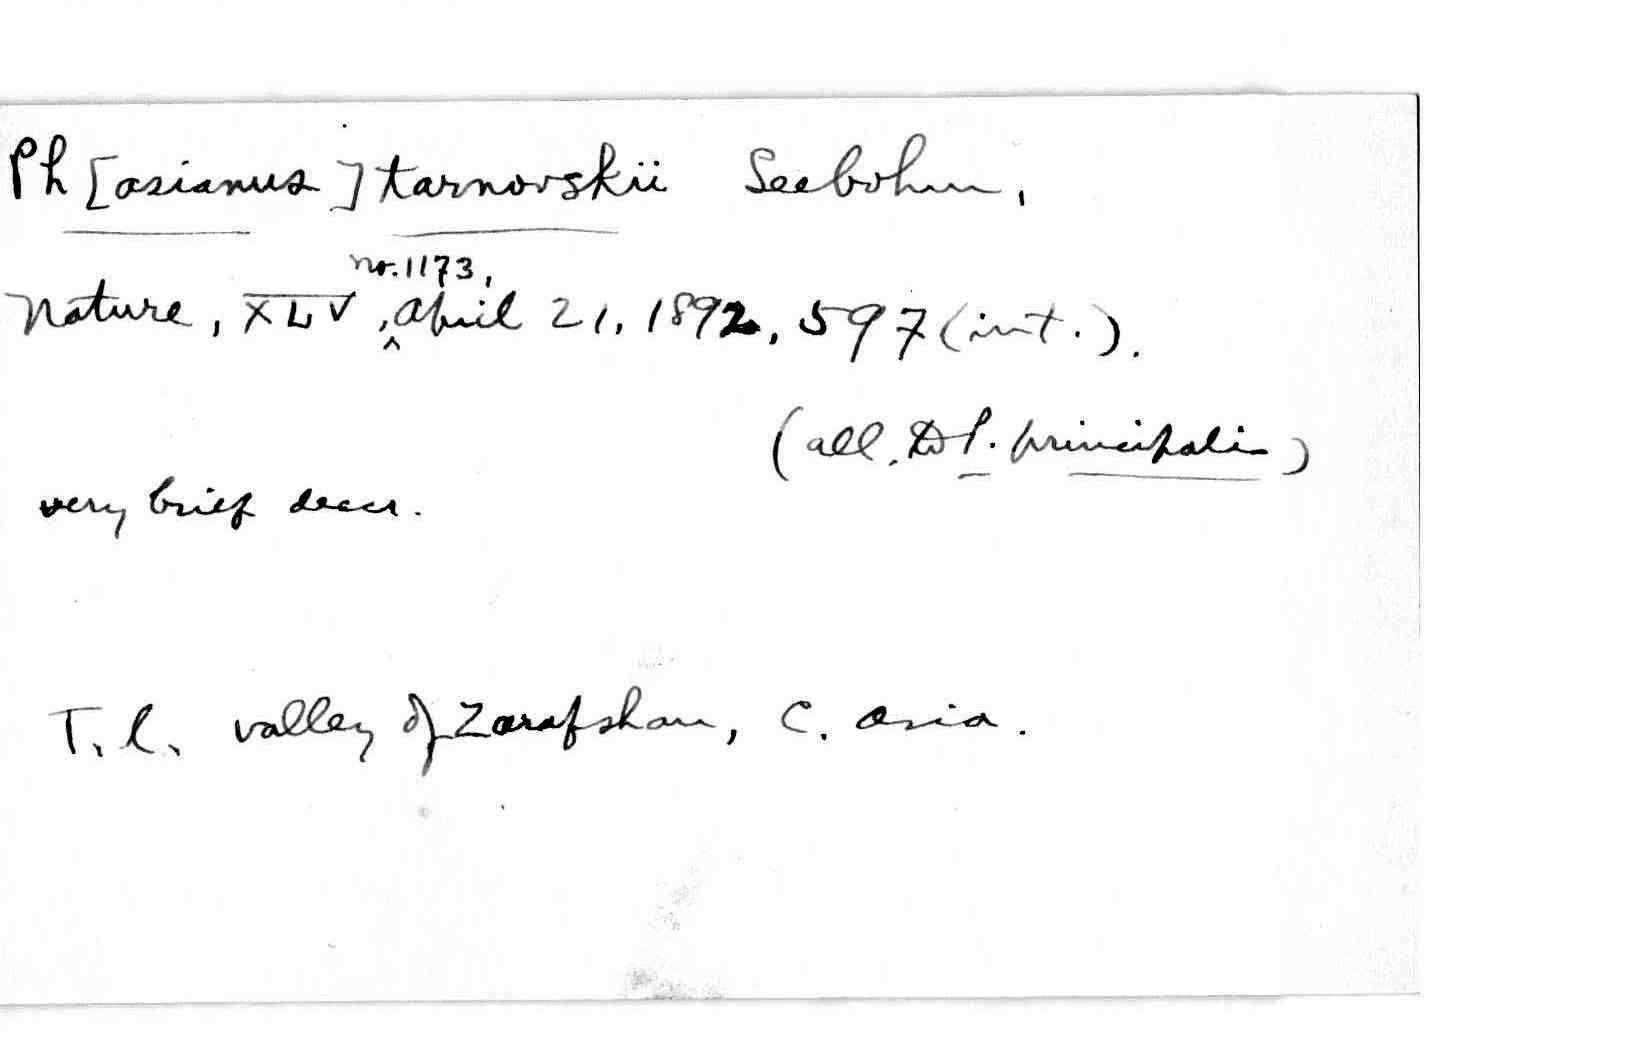 Ph[asianus] tarnovskii Seebohm,
Nature, XLV, no. 1173, April 21, 1892, 597 (int.).
(all. to P. principalis)
very brief descr.
T.l. valley of Zarafshan, C. Asia.